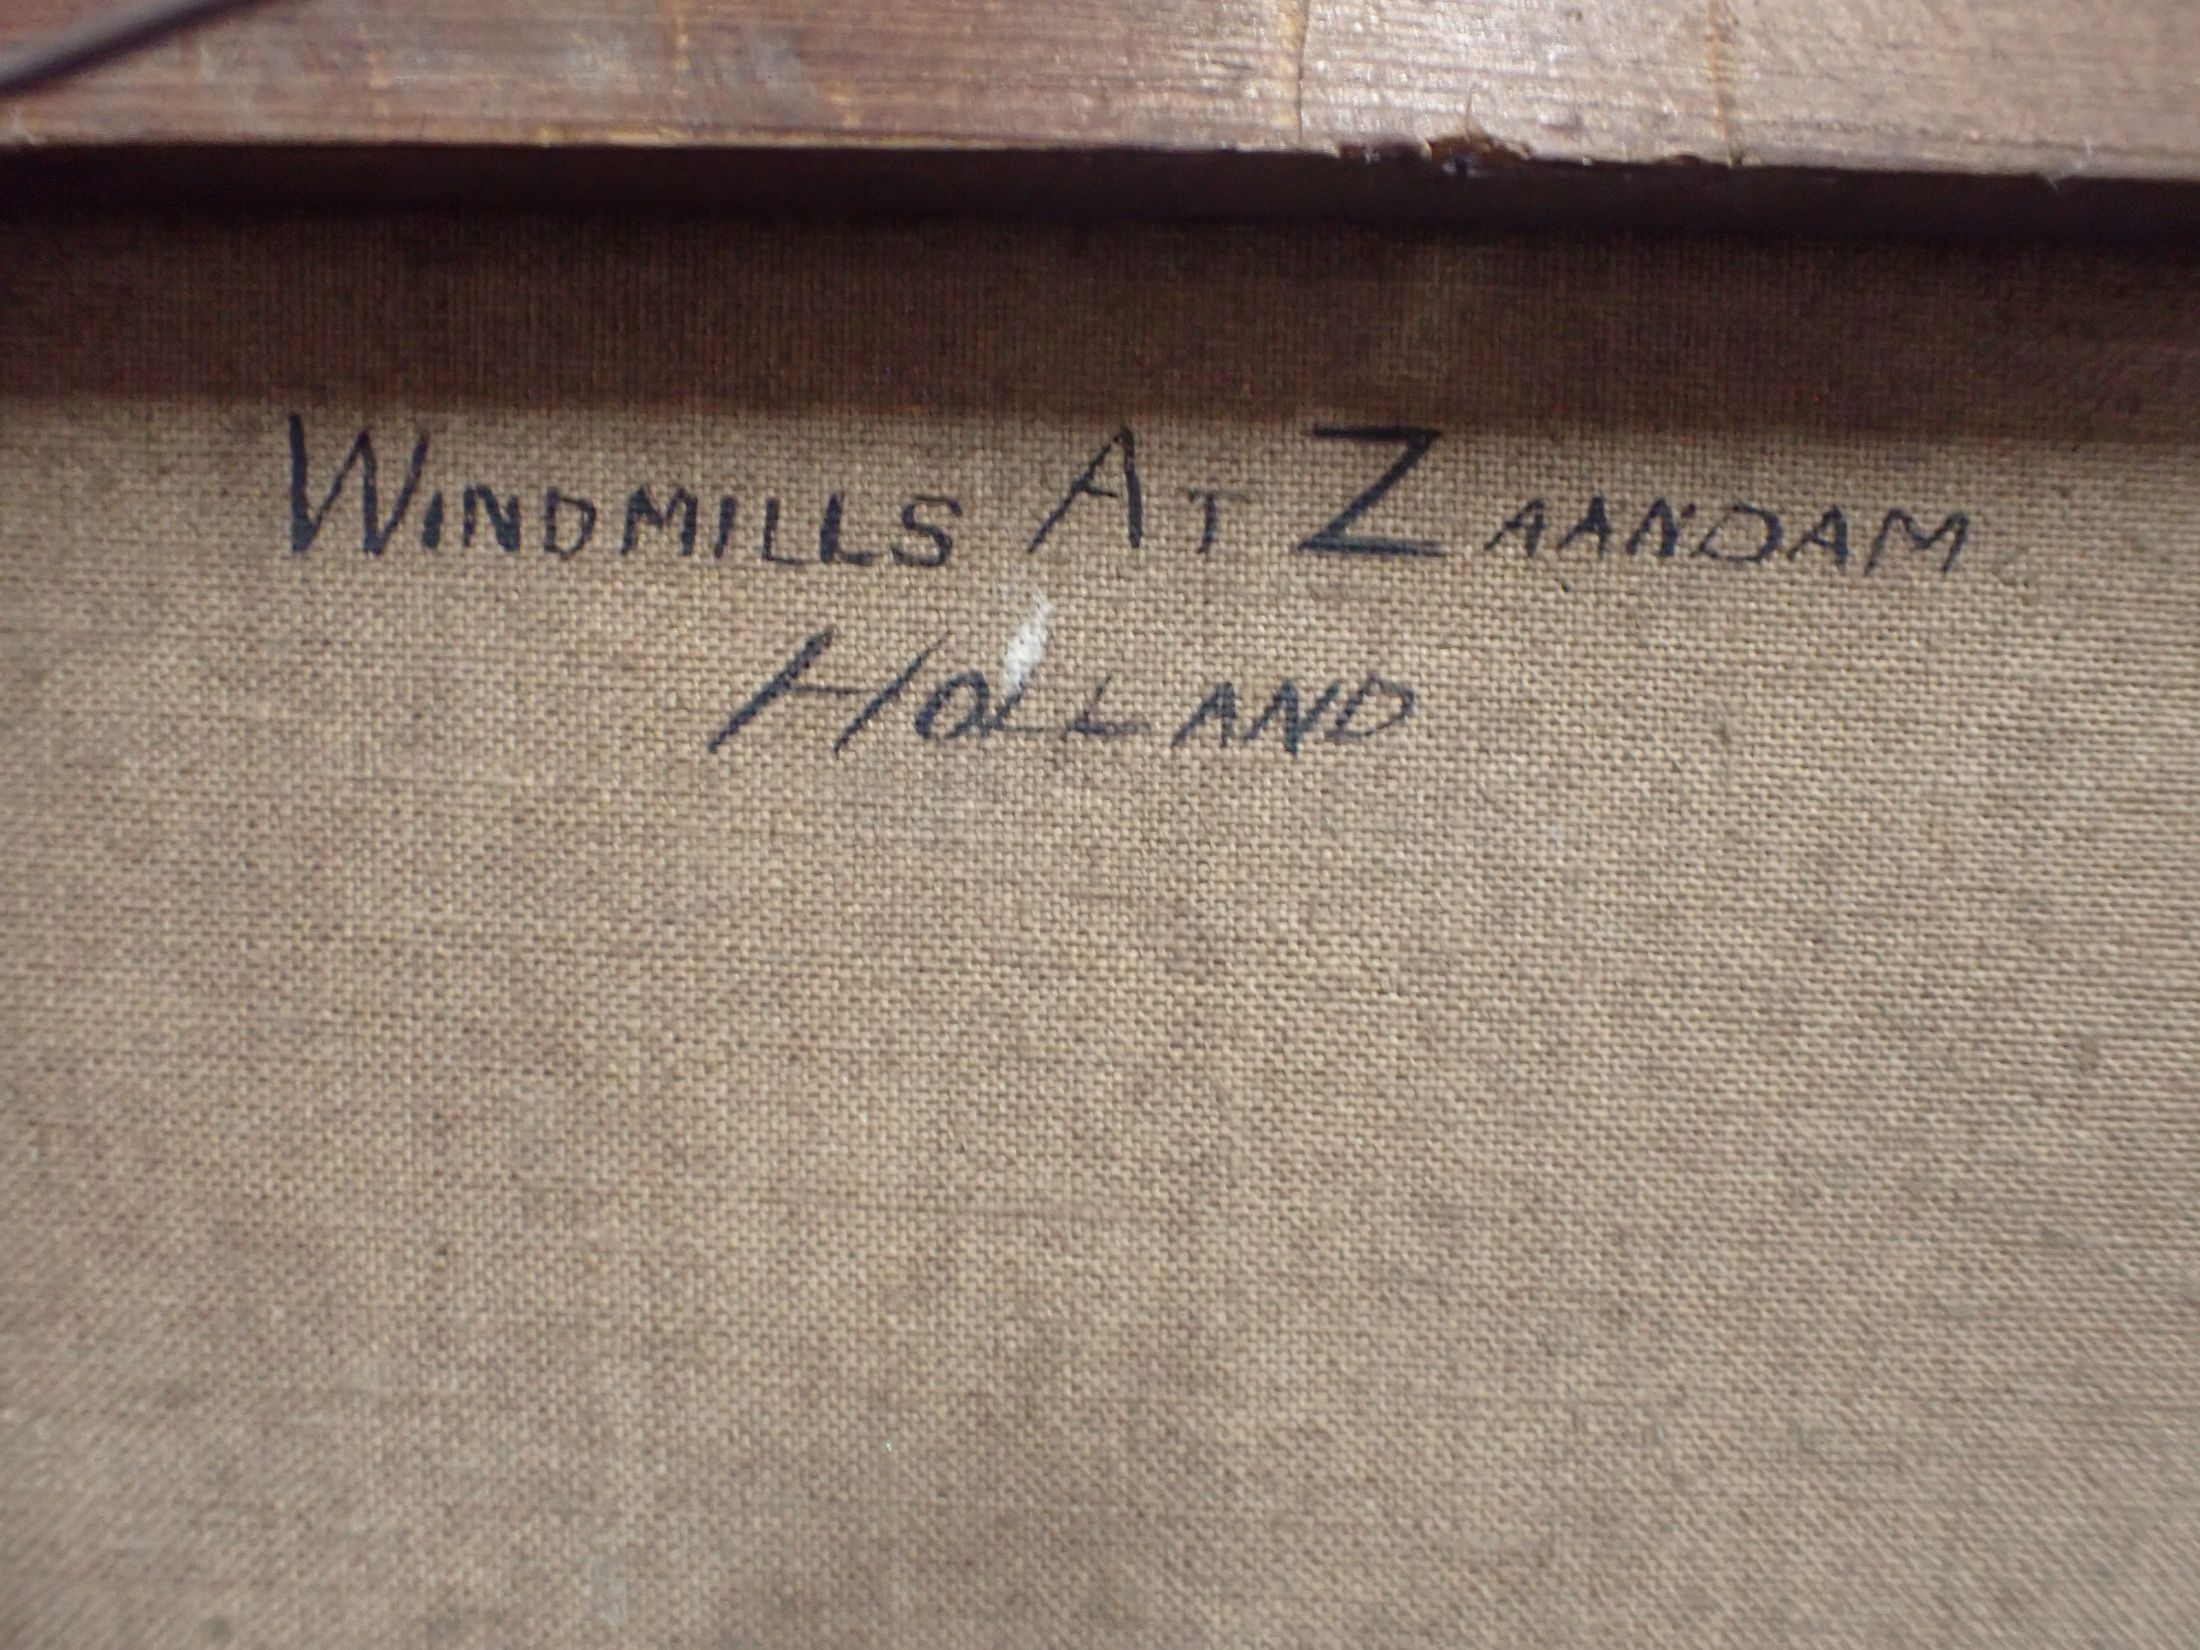 WINDMILLS AT ZAANDAM
HOLLAND